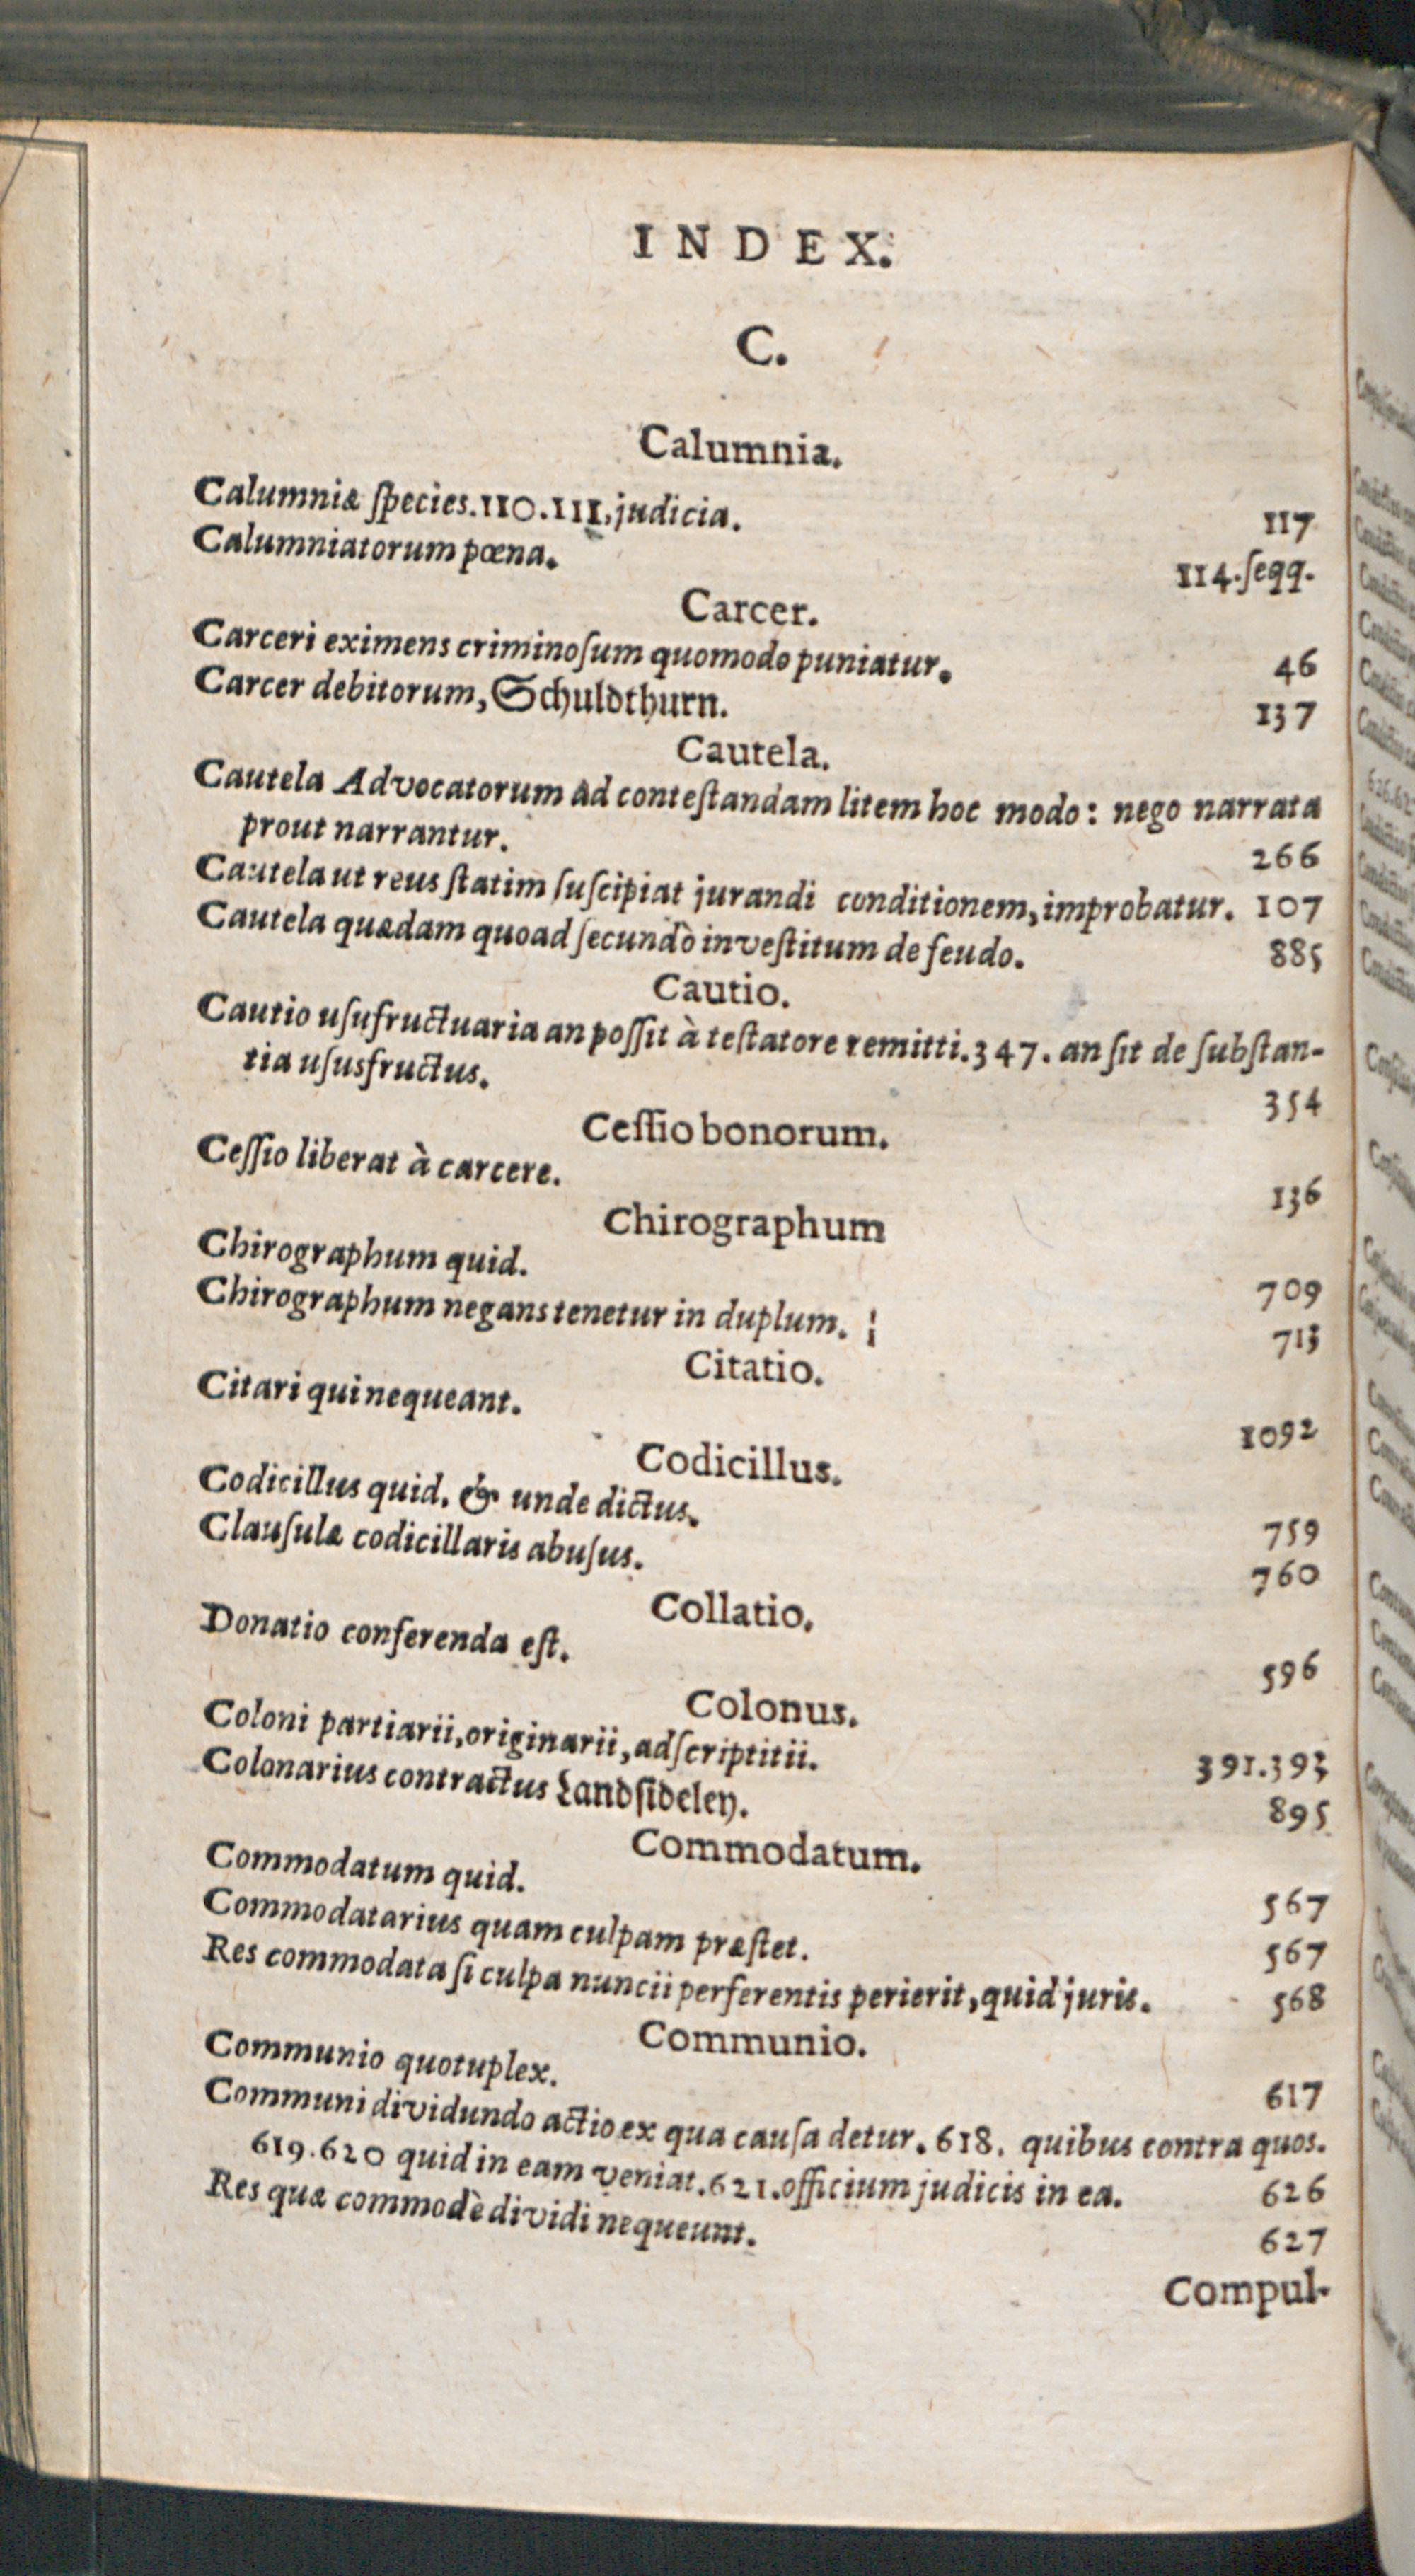 INDEX.
C.
Calumnia.
Calumniæ ſpecies.110.111.judicia. 117
Calumniatorum pœna. 114.ſeqq.
Carcer.
Carceri eximens criminoſum quomodo puniatur. 46
Carcer debitorum, Schuldthurn. 137
Cautela.
Cautela Advocatorum ad conteſtandam litem hoc modo: nego narrata
prout narrantur. 266
Cautela ut reus ſtatim ſuſcipiat jurandi conditionem, improbatur. 107
Cautela quædam quoad ſecundò inveſtitum de feudo. 885
Cautio.
Cautio uſufructuaria an poſſit à teſtatore remitti.347. an ſit de ſubſtan-
tia uſusfructus. 354
Ceſſio bonorum.
Ceſſio liberat à carcere. 136
Chirographum
Chirographum quid. 709
Chirographum negans tenetur in duplum. 713
Citatio.
Citari qui nequeant. 1092
Codicillus.
Codicillus quid, & unde dictus. 759
Clauſulæ codicillaris abuſus. 760
Collatio.
Donatio conferenda eſt. 596
Colonus.
Coloni partiarii, originarii, adſcriptitii. 391.393
Colonarius contractus Landſideley. 895
Commodatum.
Commodatum quid. 567
Commodatarius quam culpam præſtet. 567
Res commodata ſi culpa nuncii perferentis perierit, quid juris. 568
Communio.
Communio quotuplex. 617
Communi dividundo actio ex qua cauſa detur. 618. quibus contra quos.
619.620 quid in eam veniat.621.officium judicis in ea. 626
Res quæ commodè dividi nequeunt. 627
Compul-